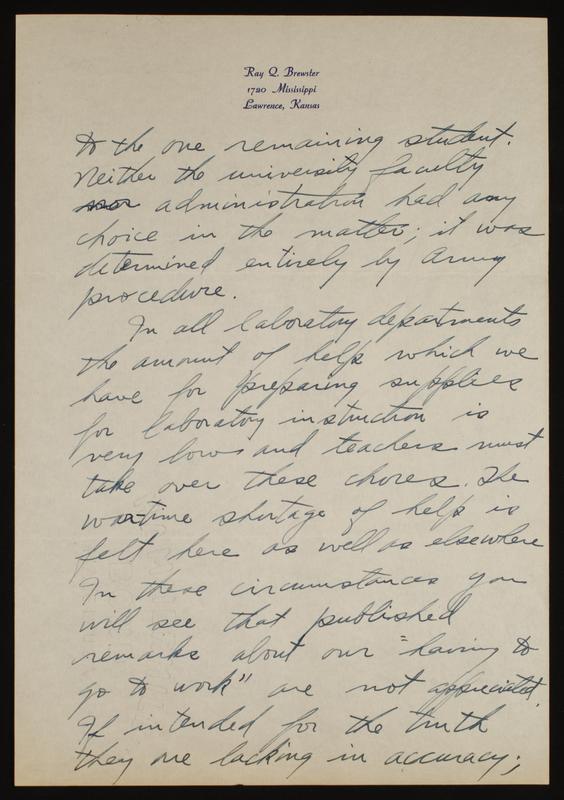 Ray Q. Brewster
1720 Mississippi
Lawrence, Kansas
to the one remaining student.
Neither the university faculty
nor administration had any
choice in the matter; it was
determined entirely by Army
procedure.
In all laboratory departments
the amount of help which we
have for preparing supplies
for laboratory instruction is
very low and teachers must
take over these chores. The
wartime shortage of help is
felt here as well as elsewhere
In these circumstances you
will see that published
remarks about our "having to
go to work" are not appreciated.
If intended for the truth
they are lacking in accuracy;